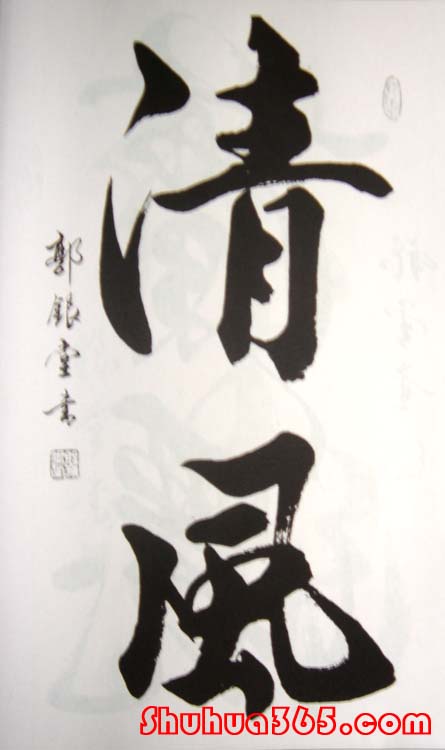 清風
郭銀堂書
Shuhua365.com